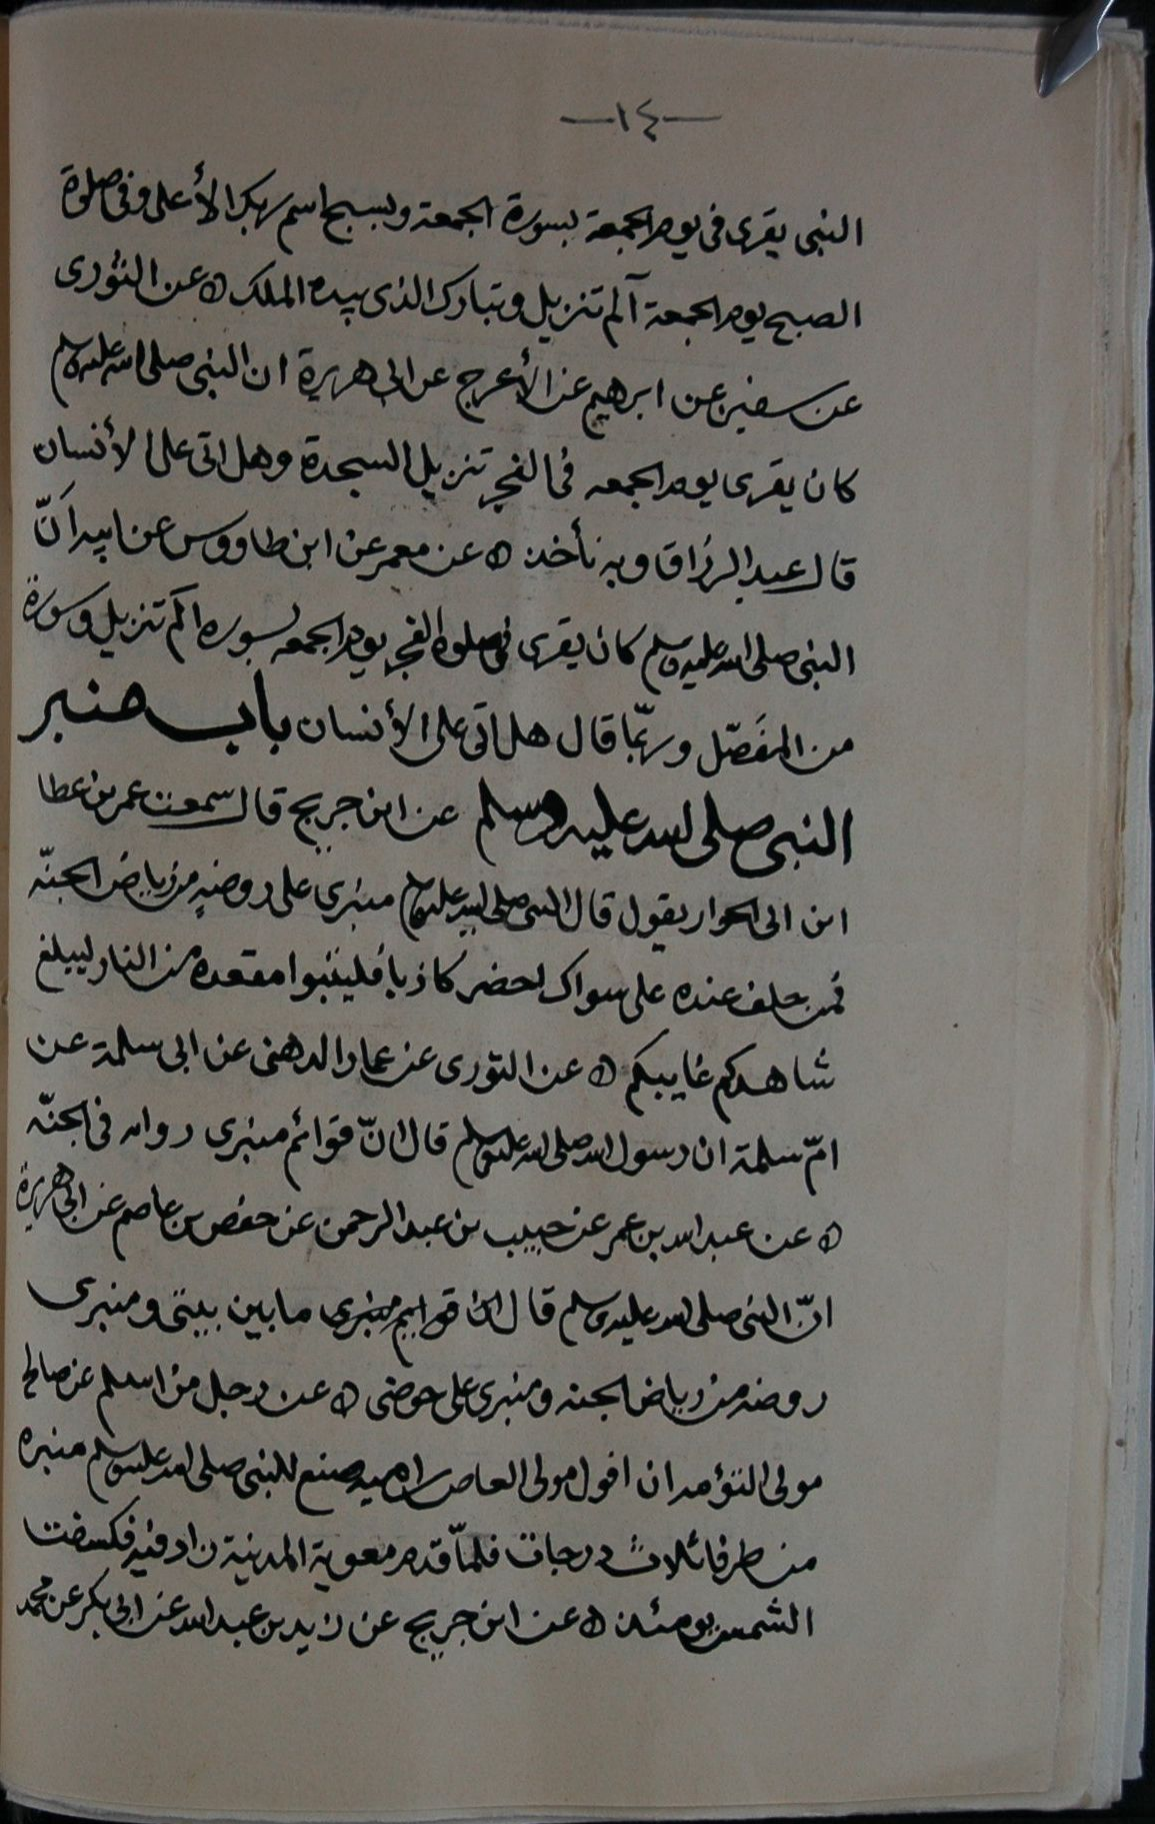 —١٤—
النبى يقرى فى يوم الجمعة بسورة الجمعة وبسبح اسم ربك الأعلى وفى صلوة
الصبح يوم الجمعة آلم تنزيل وتبارك الذى بيده الملك ه عن الثورى
عن سفين عن ابرهيم عن الأعرج عن ابى هريرة ان النبى صلى الله عليه وسلم
كان يقرى يوم الجمعه فى الفجر تنزيل السجدة وهل اتى على الأنسان
قال عبد الرزاق وبه نأخذ ه عن معمر عن ابن طاووس عن ابيه أنّ
النبى صلى الله عليه وسلم كان يقرى فى صلوة الفجر يوم الجمعه بسوره الم تنزيل وسورة
من المفصّل وربّما قال هل اتى على الأنسان باب منبر
النبى صلى الله عليه وسلم عن ابن جريج قال سمعت عمر بن عطا
ابن ابى الحوار يقول قال النبى صلى الله عليه وسلم منبرى على روضه من رياض الجنّه
فمن حلف عنده على سواك اخضر كاذبا فليتبوا مقعده من النار ليبلغ
شاهدكم غايبكم ه عن الثورى عن عمار الدهنى عن ابى سلمة عن
امّ سلمة ان رسول الله صلى الله عليه وسلم قال انّ قوائم منبرى رواب فى الجنّه
ه عن عبد الله بن عمر عن حبيب بن عبد الرحمن عن حفص بن عاصم عن ابى هريرة
انّ النبى صلى الله عليه وسلم قال ان قوايم منبرى ما بين بيتى ومنبرى
روضه من رياض الجنه ومنبرى على حوضى ه عن رجل من اسلم عن صالح
مولى التؤمه ان افول مولى العاص بن اميه صنع للنبى صلى الله عليه وسلم منبره
من طرفا ثلاث درجات فلمّا قدم معوية المدينة زاد فيه فكسفت
الشمس يومئذ ه عن ابن جريج عن زيد بن عبد الله عن ابى بكر عن محمد